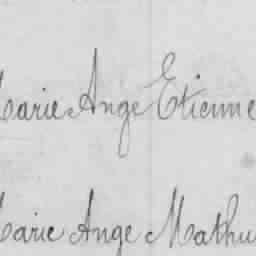 Marie Ange Etienne
Marie Ange Mathu